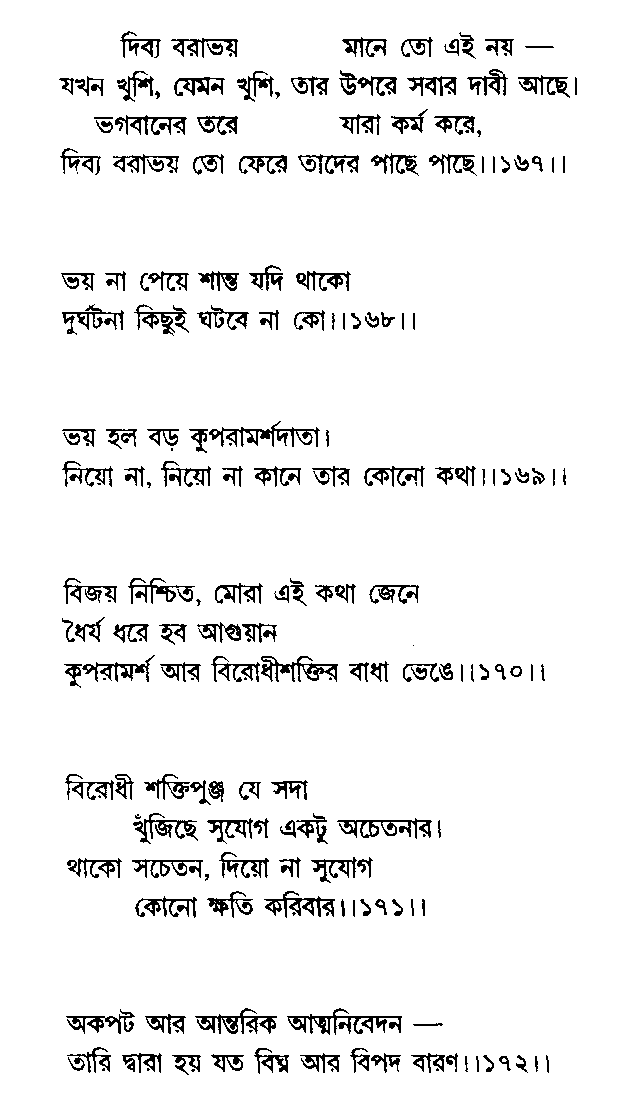 দিব্য বরাভয় মানে তো এই নয় —
যখন খুশি, যেমন খুশি, তার উপরে সবার দাবী আছে।
ভগবানের তরে যারা কর্ম করে,
দিব্য বরাভয় তো ফেরে তাদের পাছে পাছে।।১৬৭।।
ভয় না পেয়ে শান্ত যদি থাকো
দুর্ঘটনা কিছুই ঘটবে না কো।।১৬৮।।
ভয় হল বড় কুপরামর্শদাতা।
নিয়ো না, নিয়ো না কানে তার কোনো কথা।।১৬৯।।
বিজয় নিশ্চিত, মোরা এই কথা জেনে
ধৈর্য ধরে হব আগুয়ান
কুপরামর্শ আর বিরোধীশক্তির বাধা ভেঙে।।১৭০।।
বিরোধী শক্তিপুঞ্জ যে সদা
খুঁজিছে সুযোগ একটু অচেতনার।
থাকো সচেতন, দিয়ো না সুযোগ
কোনো ক্ষতি করিবার।।১৭১।।
অকপট আর আন্তরিক আত্মনিবেদন —
তারি দ্বারা হয় যত বিঘ্ন আর বিপদ বারণ।।১৭২।।